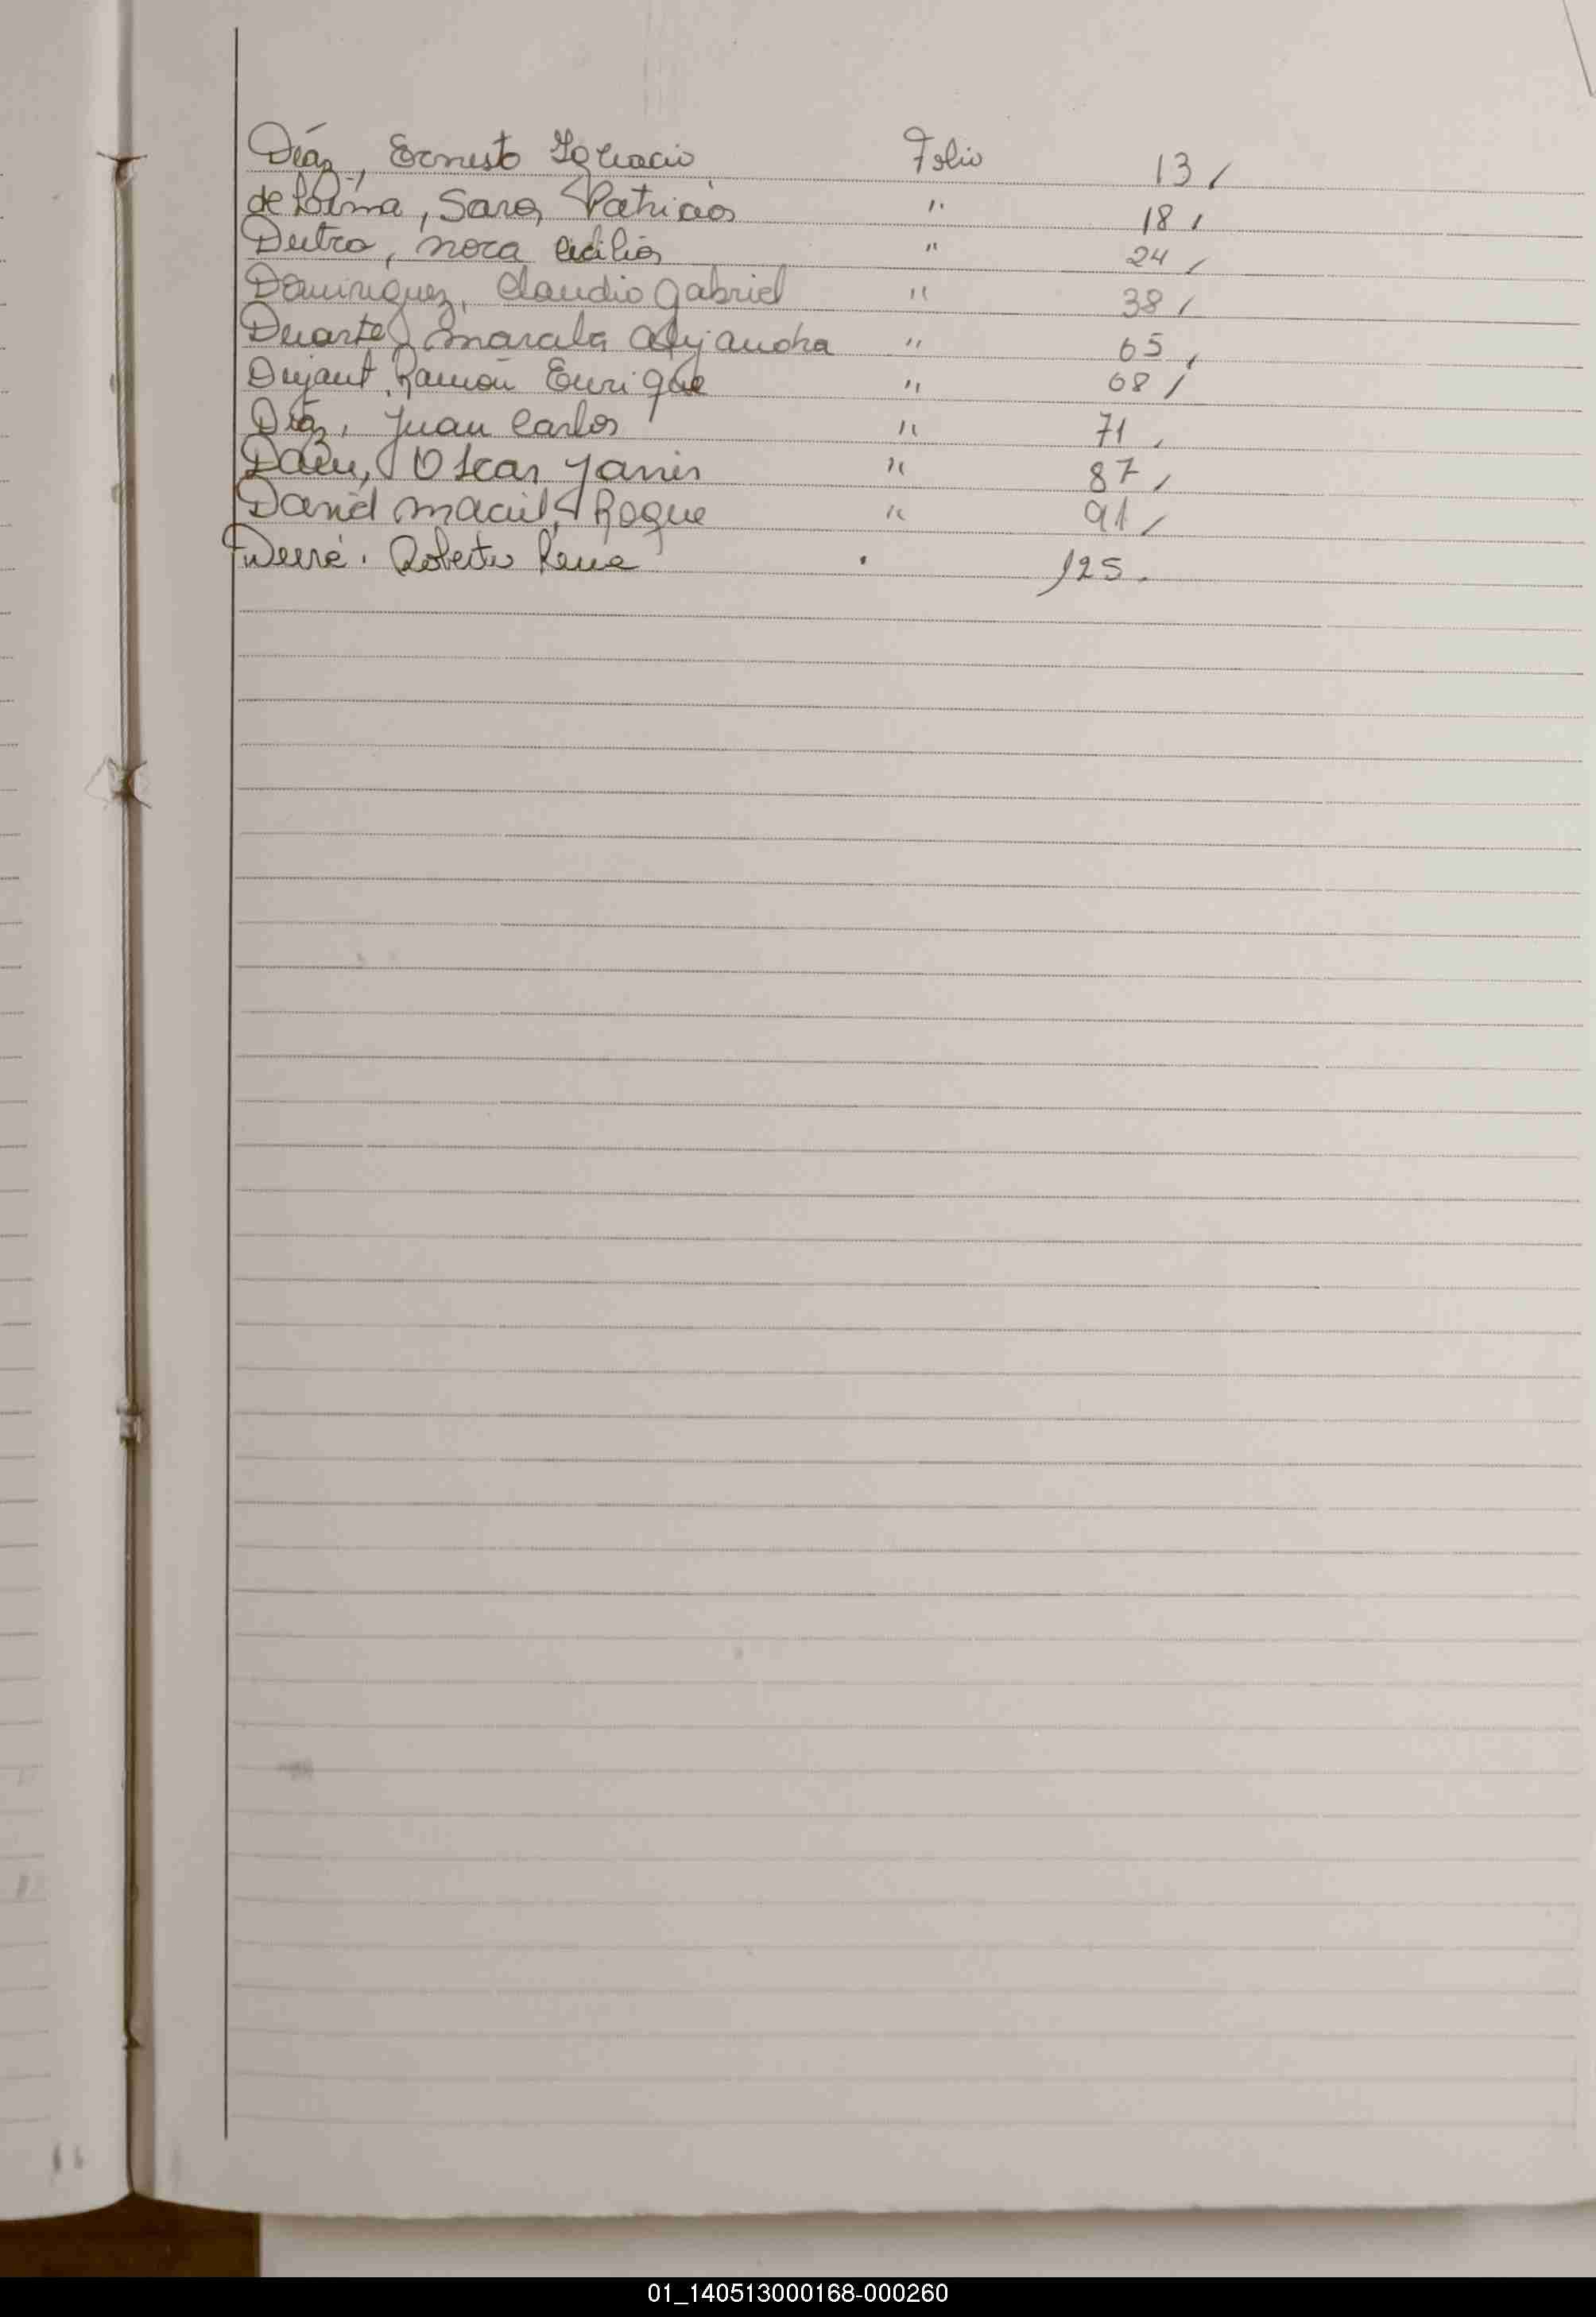 Díaz, Ernesto Ignacio Folio 13
de Lima, Sara Patricia " 18
Dutra, Nora Cecilia " 24
Dominguez, Claudio Gabriel " 38
Duarte, Marcela Alejandra " 65
Dujaut, Ramón Enrique " 68
Díaz, Juan Carlos " 71
Oscar " 87
Daniel Maciel, Roque " 91
Roberto Rene 125.
01_140513000168-000260